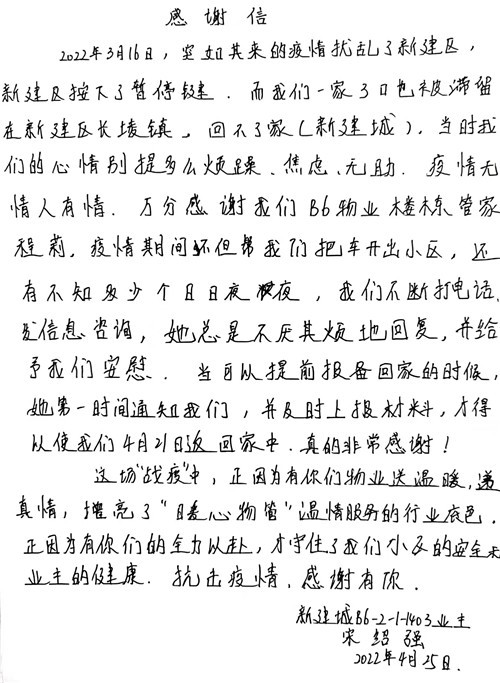 感谢信
2022年3月16日，突如其来的疫情扰乱了新建区，
新建区按下了暂停键．而我们一家3口也被滞留
在新建区长堎镇，回不了家（新建城）．当时我
们的心情别提多么烦躁、焦虑、无助．疫情无
情人有情．万分感谢我们B6物业楼栋管家
程莉，疫情期间不但帮我们把车开出小区，还
有不知多少个日日夜夜，我们不断打电话、
发信息咨询，她总是不厌其烦地回复，并给
予我们安慰．当可以提前报备回家的时候，
她第一时间通知我们，并及时上报材料，才得
以使我们4月21日返回家中．真的非常感谢！
这场“战疫”中，正因为有你们物业送温暖，递
真情，擦亮了“暖心物管”温情服务的行业底色．
正因为有你们的全力以赴，才守住了我们小区的安全和
业主的健康．抗击疫情、感谢有你．
新建城B6-2-1-1403业主
宋绍强
2022年4月25日．